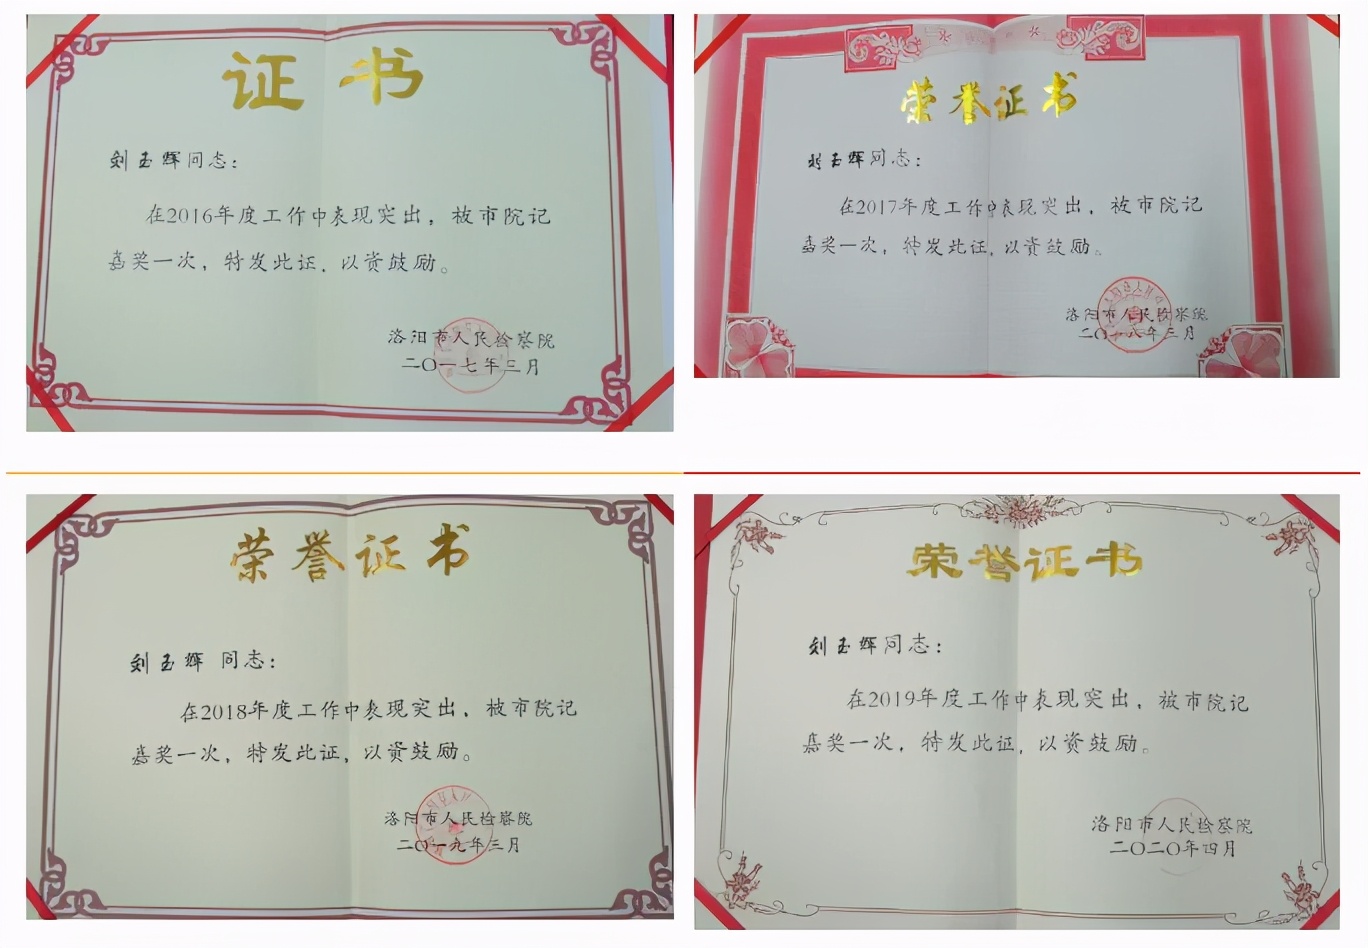 证书
刘玉辉同志：
在2016年度工作中表现突出，被市院记
嘉奖一次，特发此证，以资鼓励。
洛阳市人民检察院
二〇一七年三月
荣誉证书
刘玉辉同志：
在2017年度工作中表现突出，被市院记
嘉奖一次，特发此证，以资鼓励。
洛阳市人民检察院
二〇一八年三月
荣誉证书
刘玉辉 同志：
在2018年度工作中表现突出，被市院记
嘉奖一次，特发此证，以资鼓励。
洛阳市人民检察院
二〇一九年三月
荣誉证书
刘玉辉同志：
在2019年度工作中表现突出，被市院记
嘉奖一次，特发此证，以资鼓励。
洛阳市人民检察院
二〇二〇年四月